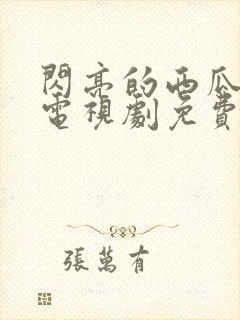 閃亮的西瓜
電視劇免費
張萬有